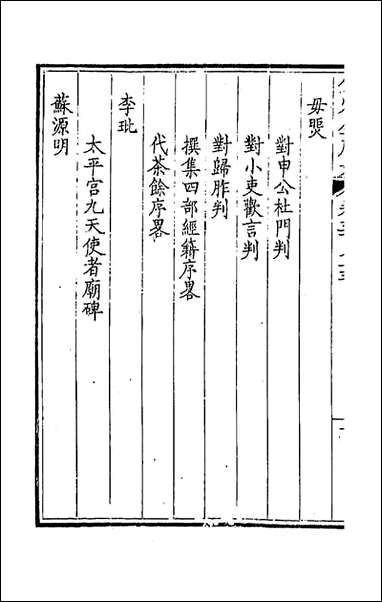 毋煚
對申公杜門判
對小吏歡言判
對歸胙判
撰集四部經籍序畧
代茶餘序畧
李玭
太平宮九天使者廟碑
蘇源明